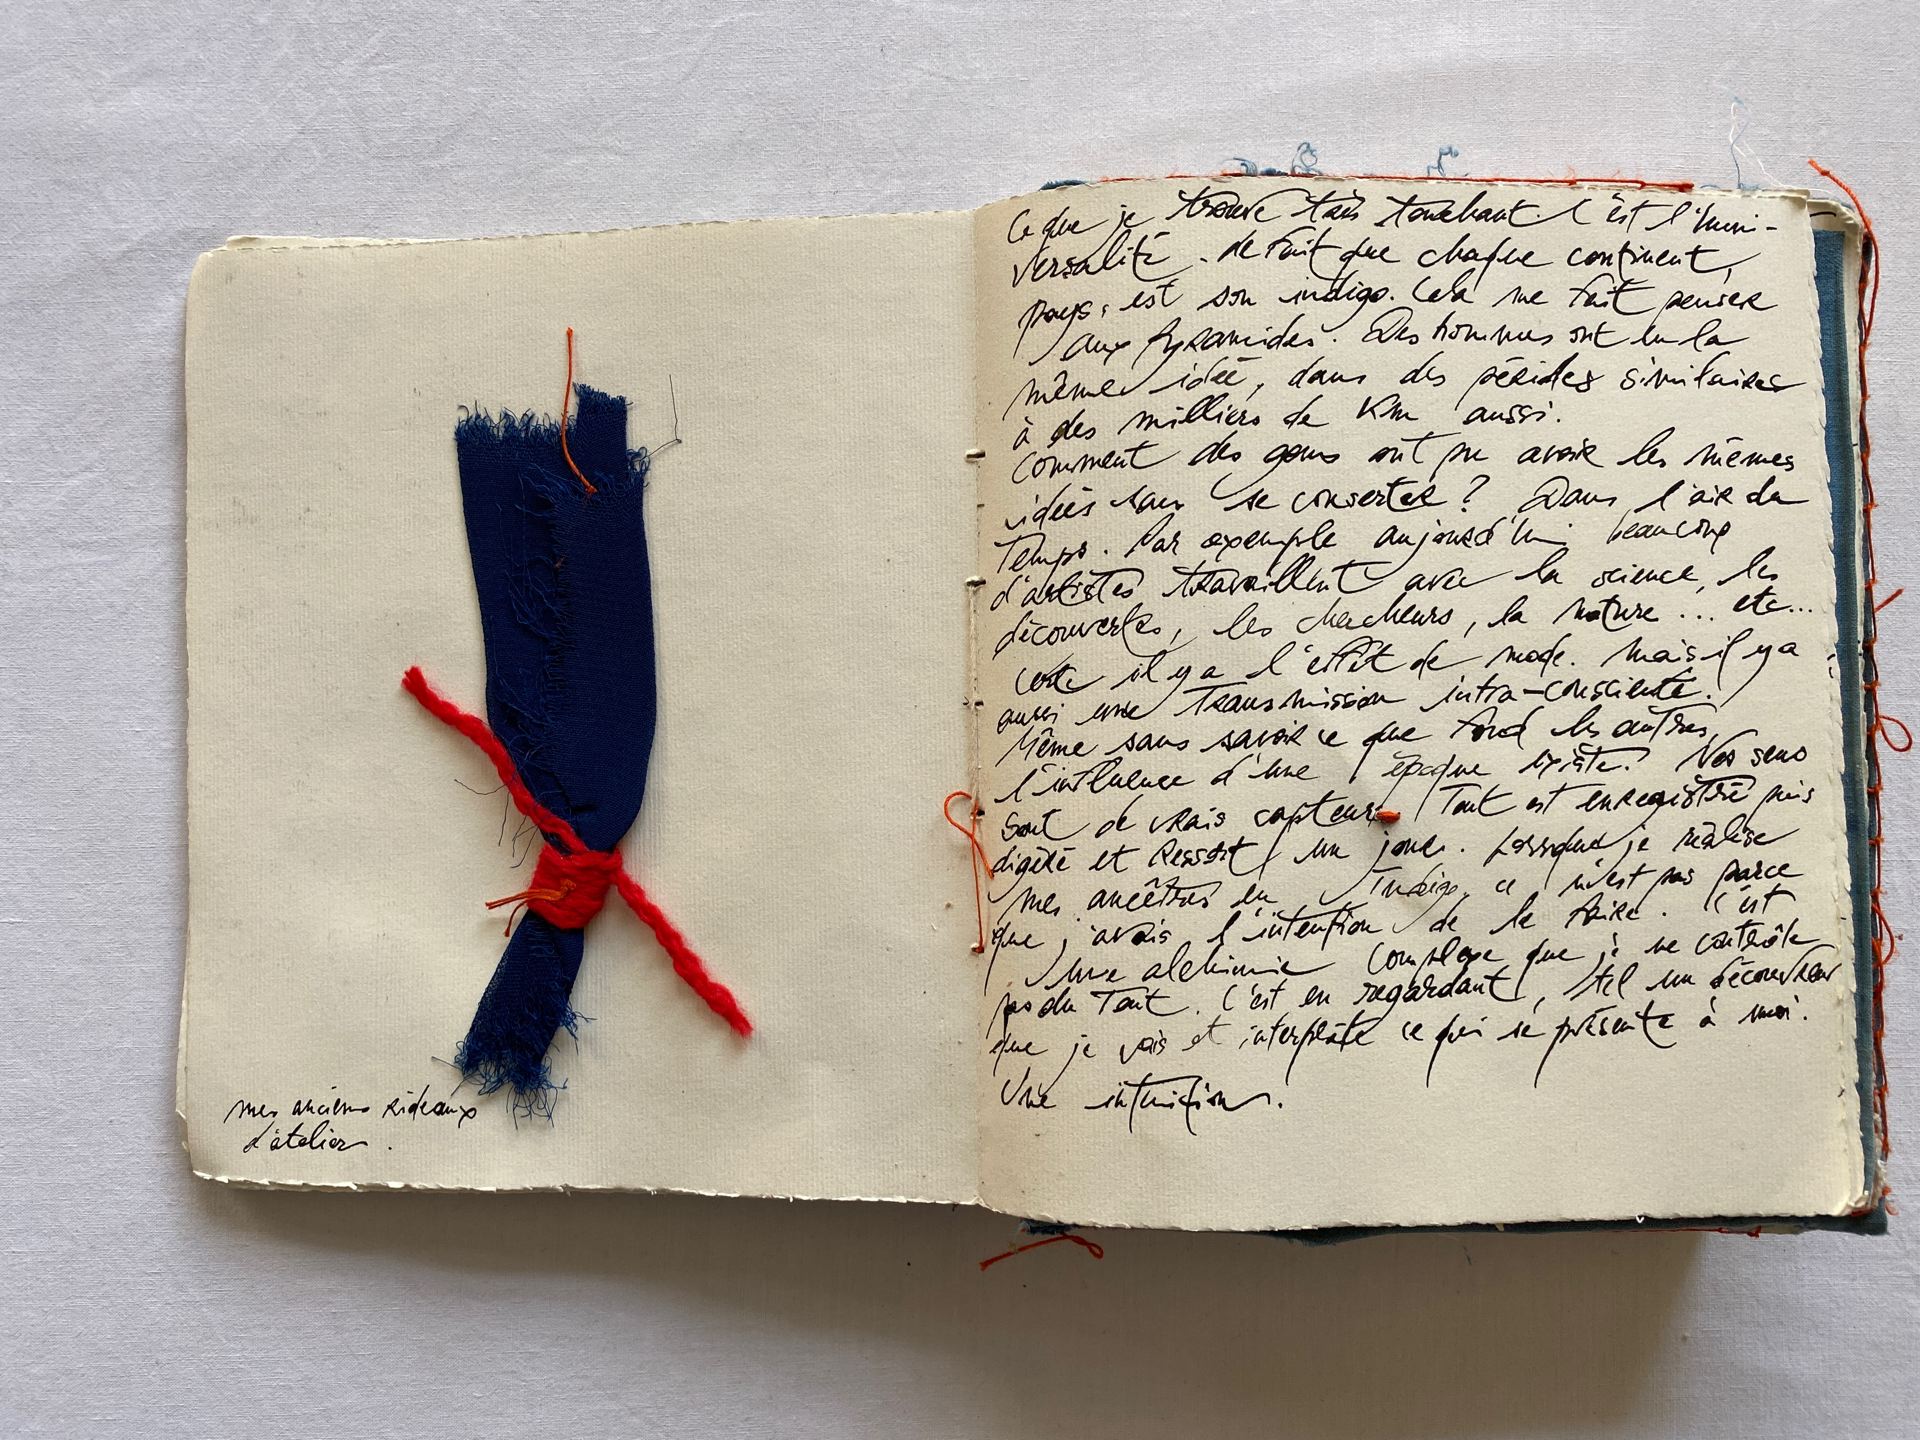 mes anciens rideaux
d'atelier.
Ce que je trouve très touchant. C'est l'uni-
versalité. de fait que chaque continent,
pays, est son indigo. Cela me fait penser
aux pyramides. Des hommes ont eu la
même idée, dans des périodes similaires
à des milliers de Km aussi.
Comment des gens ont pu avoir les mêmes
idées sans se conserter? Dans l'air du
Temps. Par exemple aujourd'hui beaucoup
d'artistes travaillent avec la science, les
découvertes, les chercheurs, la nature... etc...
certe il y a l'effet de mode. Mais il y a
aussi une transmission intra-consciente.
Même sans savoir ce que fond les autres,
l'influence d'une époque existe. Nos sens
sont de vrais capteurs. Tout est enregistré puis
digéré et ressort un jour. Lorsque je réalise
mes ancêtres en Indigo, ce n'est pas parce
que j'avais l'intention de le faire. C'est
une alchimie complexe que je ne contrôle
pas du Tout. C'est en regardant, tel un découvreur
que je vois et interprète ce qui se présente à moi.
Une intuition.